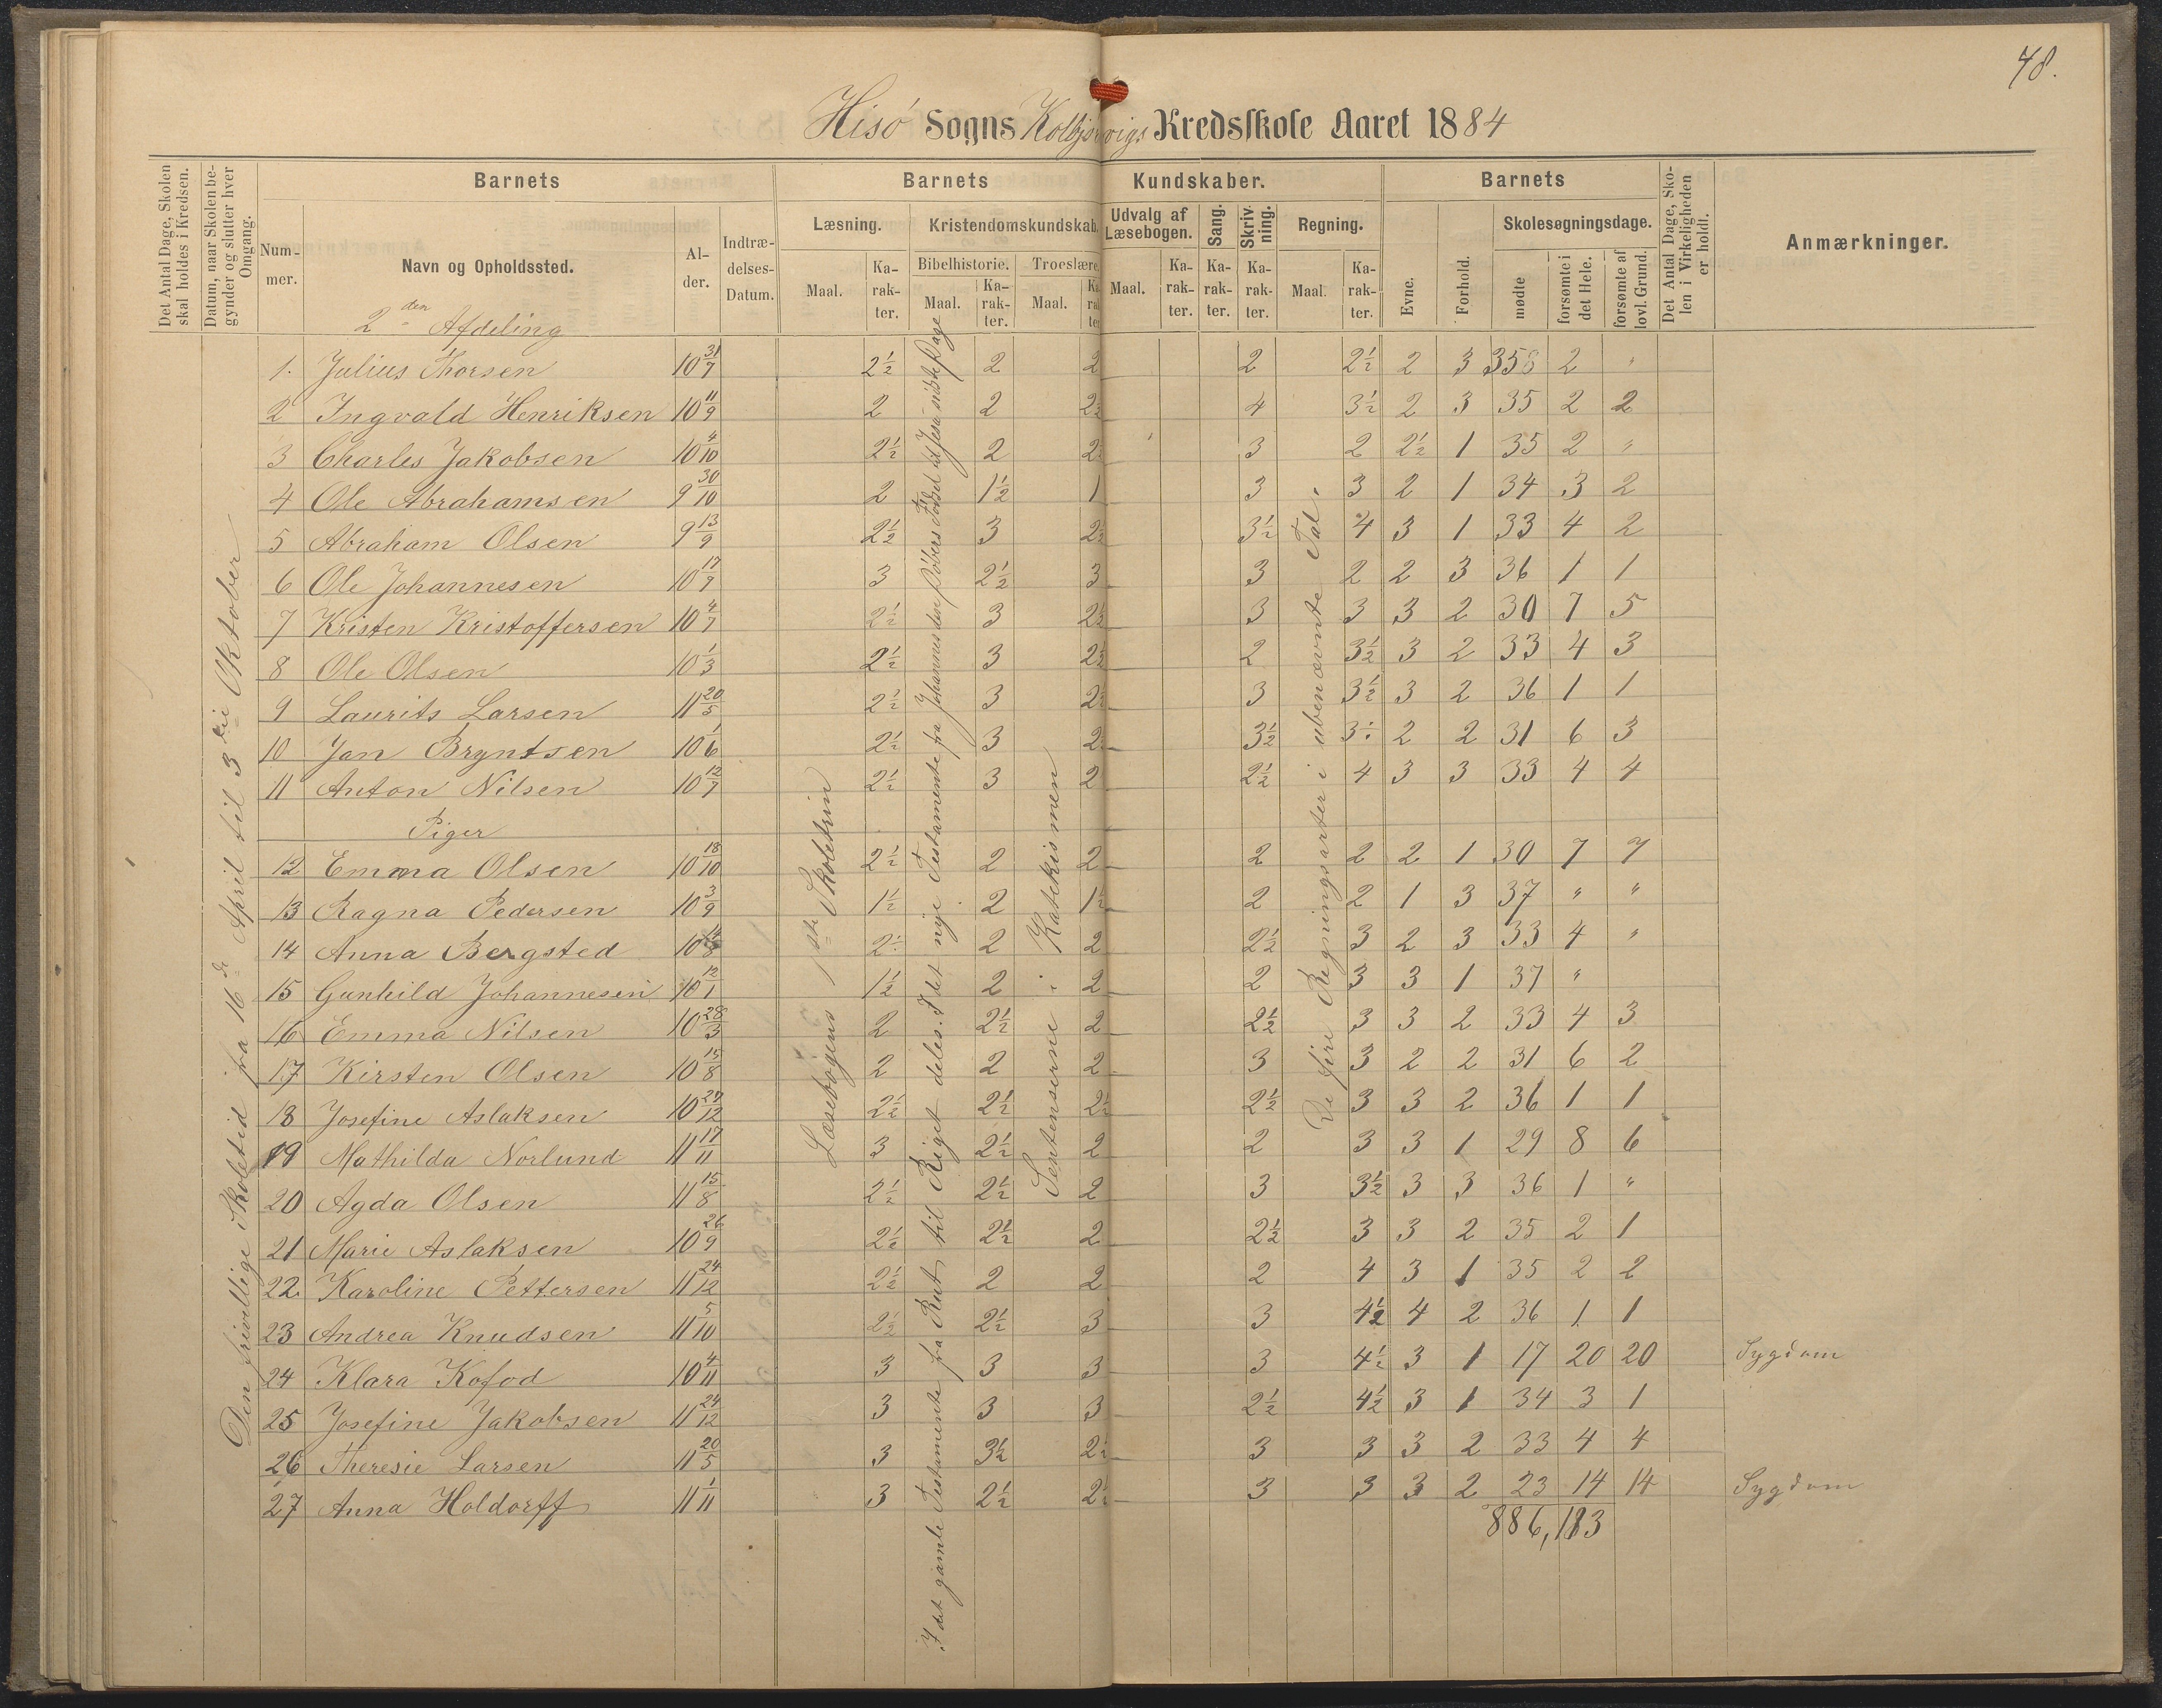 48.
Hisö Sogns Kolbjörnsvigs Kredsskole Aaret 1884
Det Antal Dage, Skolen skal holdes i Kredsen.
Datum, naar Skolen begynder og slutter hver Omgang.
Barnets Barnets Kundskaber. Barnets
Det Antal Dage, Skolen i Virkeligheden er holdt.
Anmærkninger.
Nummer. Navn og Opholdssted. Alder. Indtrædelses-Datum.
Læsning. Kristendomskundskab. Udvalg af Læsebogen. Sang. Skrivning. Regning. Evne. Forhold. Skolesøgningsdage.
Bibelhistorie. Troeslære.
Maal. Karakter. Maal. Karakter. Maal. Karakter. Maal. Karakter. Karakter. Karakter. Maal. Karakter. mødte forsømte i det Hele. forsømte af lovl. Grund.
2den Afdeling
Den frivillige Skoletid fra 16de April til 3die Oktober
Læsebogens 1ste Skoletrin
I det gamle Testamente fra Rut til Riget deles. I det nye Testamente fra Johannes den Döbers Födsel til Jesu sidste Dage
Sentenserne i Katekismen
De fire Regningsarter i ubenævnte Tal.
1. Julius Thorsen 10 31/7 2½ 2 2 2 2½ 2 3 35 2 "
2 Ingvald Henriksen 10 11/9 2 2 2½ 4 3½ 2 3 35 2 2
3 Charles Jakobsen 10 4/10 2½ 2 2½ 3 2 2½ 1 35 2 "
4 Ole Abrahamsen 9 30/10 2 1½ 1 3 3 2 1 34 3 2
5 Abraham Olsen 9 13/9 2½ 3 2½ 3½ 4 3 1 33 4 2
6 Ole Johannesen 10 17/9 3 2½ 3 3 2 2 3 36 1 1
7 Kristen Kristoffersen 10 4/7 2½ 3 2½ 3 3 3 2 30 7 5
8 Ole Olsen 10 1/3 2½ 3 2½ 2 3½ 3 2 33 4 3
9 Laurits Larsen 11 20/5 2½ 3 2½ 3 3½ 3 2 36 1 1
10 Jan Bryntsen 10 1/6 2½ 3 2½ 3½ 3½ 2 2 31 6 3
11 Anton Nilsen 10 12/7 2½ 3 2 2½ 4 3 3 33 4 4
Piger
12 Emma Olsen 10 18/10 2½ 2 2 2 2 2 1 30 7 7
13 Ragna Pedersen 10 3/9 1½ 2 1½ 2 2 1 3 37 " "
14 Anna Bergsted 10 2½ 2 2 2½ 3 2 3 33 4 "
15 Gunhild Johannesen 10 12/1 1½ 2 2 2 3 3 1 37 "
16 Emma Nilsen 10 28/3 2 2½ 2 2½ 3 3 2 33 4 3
17 Kirsten Olsen 10 15/8 2 2 2 3 3 2 2 31 6 2
18 Josefine Aslaksen 10 29/12 2½ 2½ 2½ 2½ 3 3 2 36 1 1
19 Mathilda Norlund 11 17/11 3 2½ 2 2 3 3 1 29 8 6
20 Agda Olsen 11 15/8 2½ 2½ 2 3 3½ 3 3 36 1 "
21 Marie Aslaksen 10 26/9 2½ 2½ 2 2½ 3 3 2 35 2 1
22. Karoline Pettersen 11 24/12 2½ 2 2 2 4 3 1 35 2 2
23 Andrea Knudsen 11 5/10 2½ 2½ 3 3 4½ 4 2 36 1 1
24 Klara Kofod 10 4/11 3 3 3 3 4½ 3 1 17 20 20 Sygdom
25 Josefine Jakobsen 11 24/12 3 3 3 2½ 4½ 3 1 34 3 1
26 Theresie Larsen 11 20/5 3 3½ 2½ 3 3 3 2 33 4 4
27 Anna Holdorff 11 1/11 3 2½ 2½ 3 3 3 2 23 14 14 Sygdom
886, 183